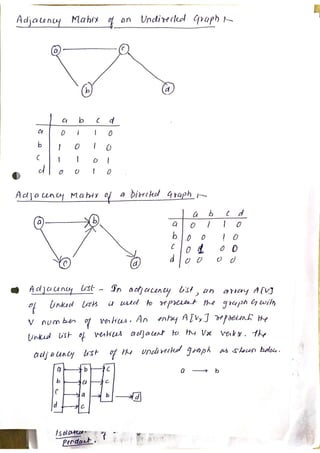 Adjacency Matrix of an Undirected Graph :-
a c
b d
a b c d
a 0 1 1 0
b 1 0 1 0
c 1 1 0 1
d 0 0 1 0
Adjacency Matrix of a Directed Graph :-
a b
c d
a b c d
a 0 1 1 0
b 0 0 1 0
c 0 0 0
d 0 0 0 0
Adjacency List - In adjacency list, an array A[V]
of linked lists is used to represent the graph G with
V number of vertices. An entry A[Vx] represents the
linked list of vertices adjacent to the Vx vertex. The
adjacency list of the undirected graph as shown below.
a b c a → b
b a c
c a b d
d c
Isolated
Pendant.